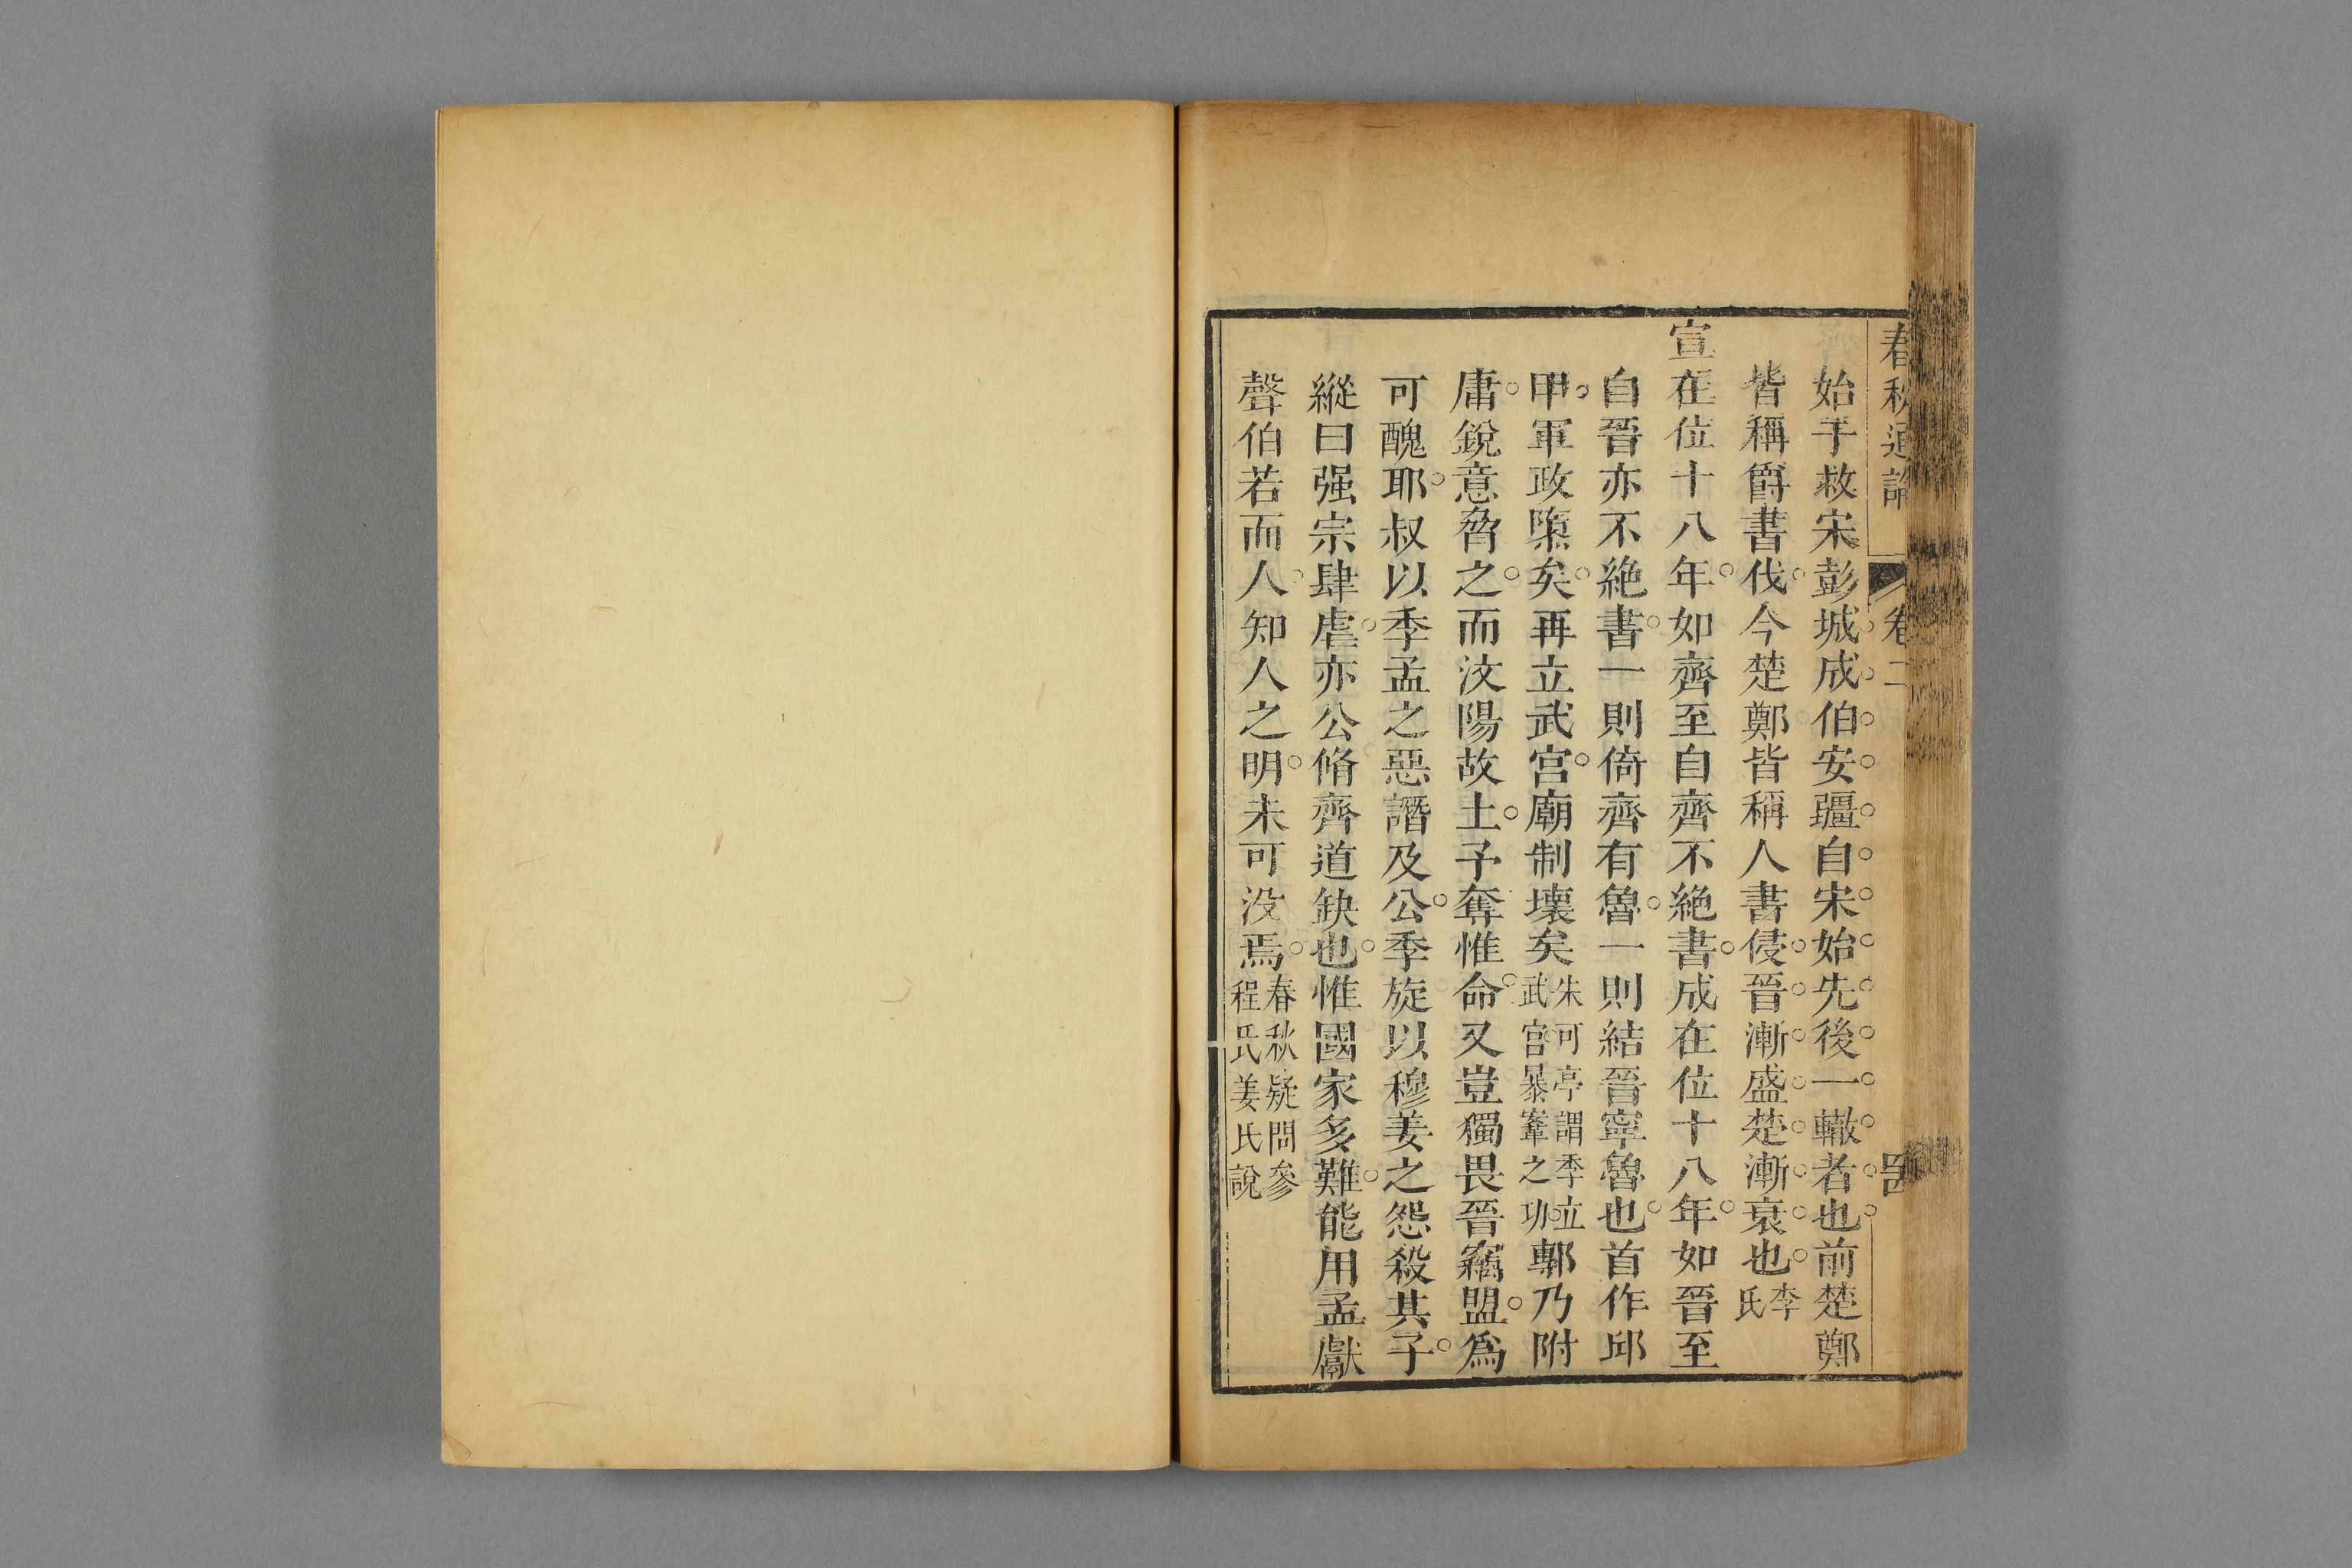 春秋通論
卷二
始于救宋彭城成伯安疆自宋始先後一轍者也前楚鄭
皆稱爵書伐今楚鄭皆稱人書侵晉漸盛楚漸衰也李氏
宣在位十八年如齊至自齊不絶書成在位十八年如晉至
自晉亦不絶書一則倚齊有魯一則結晉寧魯也首作邱
甲軍政隳矣再立武宫廟制壞矣朱可亭謂季立武宫暴鞌之功鄟乃附
庸銳意脅之而汶陽故土予奪惟命又豈獨畏晉竊盟爲
可醜耶叔以季孟之惡譖及公季旋以穆姜之怨殺其子
縱曰强宗肆虐亦公脩齊道缺也惟國家多難能用孟獻
聲伯若而人知人之明未可没焉春秋疑問參程氏姜氏說